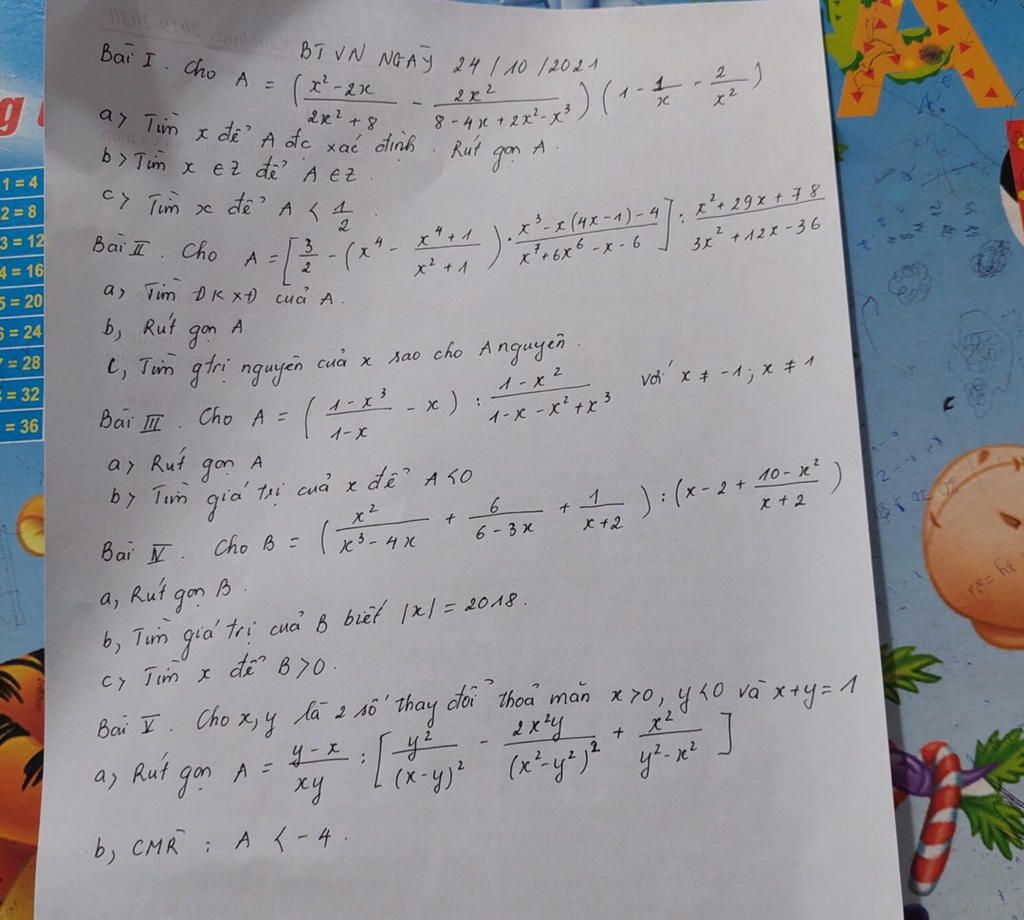 BT VN NGÀY 24/10/2021
Bài I. Cho A = (x² - 2x / 2x² + 8 - 2x² / 8 - 4x + 2x² - x³) (1 - 1/x - 2/x²)
a> Tìm x để A đc xác định. Rút gọn A.
b> Tìm x ∈ Z để A ∈ Z.
c> Tìm x để A < 1/2.
Bài II. Cho A = [3/2 - (x⁴ - x⁴ + 1 / x² + 1) . x³ - x(4x - 1) - 4 / x⁷ + 6x⁶ - x - 6] : x² + 29x + 78 / 3x² + 12x - 36
a, Tìm ĐKXĐ của A.
b, Rút gọn A
c, Tìm gtrị nguyên của x sao cho A nguyên.
Bài III. Cho A = (1 - x³ / 1 - x - x) : 1 - x² / 1 - x - x² + x³ với x ≠ -1; x ≠ 1
a> Rút gọn A
b> Tìm giá trị của x để A < 0
Bài IV. Cho B = (x² / x³ - 4x + 6 / 6 - 3x + 1 / x + 2) : (x - 2 + 10 - x² / x + 2)
a, Rút gọn B.
b, Tìm giá trị của B biết |x| = 2018.
c> Tìm x để B > 0.
Bài V. Cho x, y là 2 số thay đổi thoả mãn x > 0, y < 0 và x + y = 1
a> Rút gọn A = y - x / xy : [y² / (x - y)² - 2x²y / (x² - y²)² + x² / y² - x²]
b, CMR : A < -4.
1 = 4
2 = 8
3 = 12
4 = 16
5 = 20
6 = 24
7 = 28
= 32
= 36
A